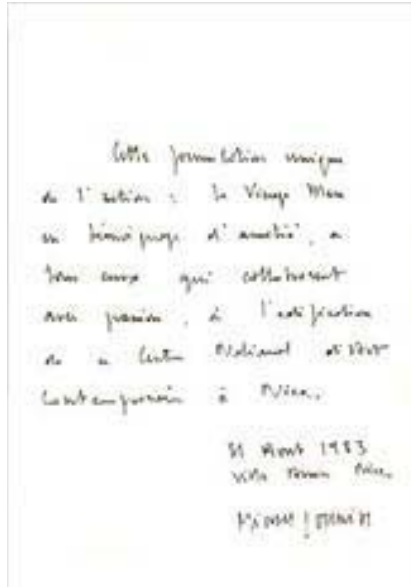 Cette formulation unique
de l'action : le Visage Mère
en témoignage d'amitié, a
tous ceux qui collaborent
avec passion, à l'édification
de ce Centre National d'Art
Contemporain à Nice.
31 Août 1983
Villa Nice,